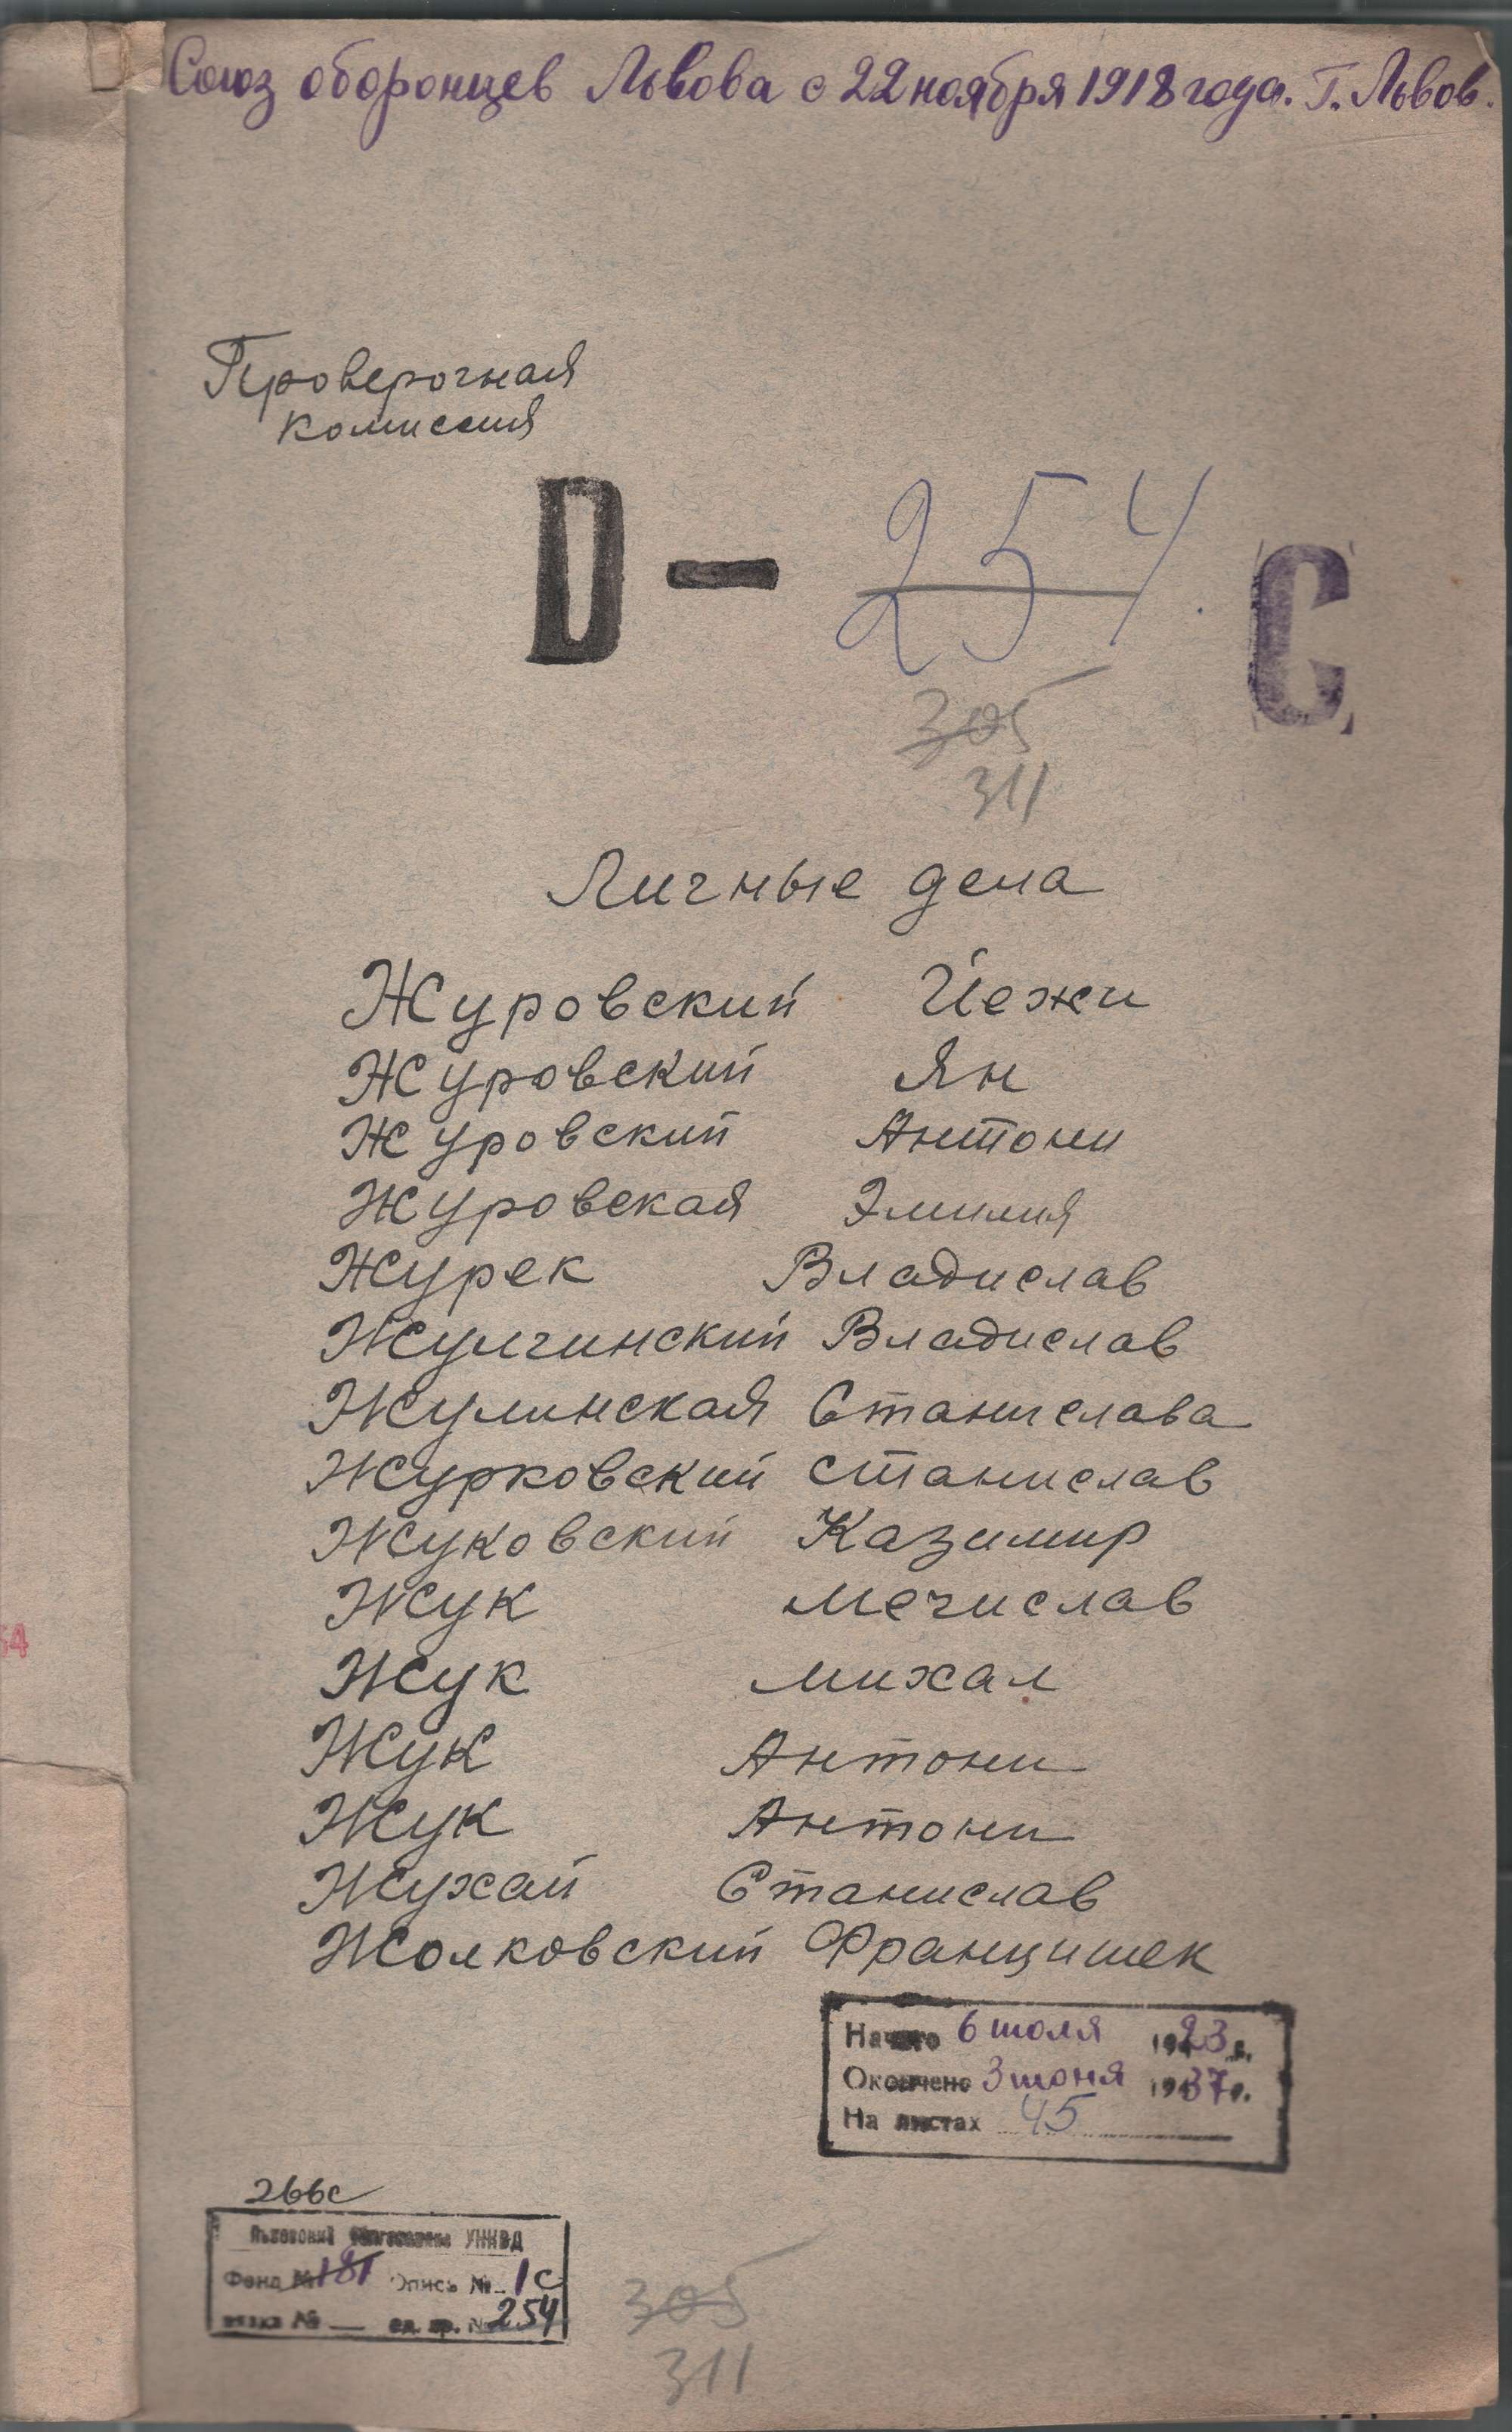 Союз оборонцев Львова с 22 ноября 1918 года. Г. Львов.
Проверочная
комиссия
D — 254.
С
305
311
Личные дела
Журовский Йежи
Журовский Ян
Журовский Антони
Журовская Эмилия
Журек Владислав
Жулчинский Владислав
Жулинская Станислава
Журковский Станислав
Жуковский Казимир
Жук Мечислав
Жук Михал
Жук Антони
Жук Антони
Жухай Станислав
Жолковский Францишек
Начато 6 июля 1923 г.
Окончено 3 июня 1937 г.
На листах 45
266с
Львовский УНКВД
Фонд № 181 Опись № 1с
вязка № — ед. хр. № 254
305
311
54